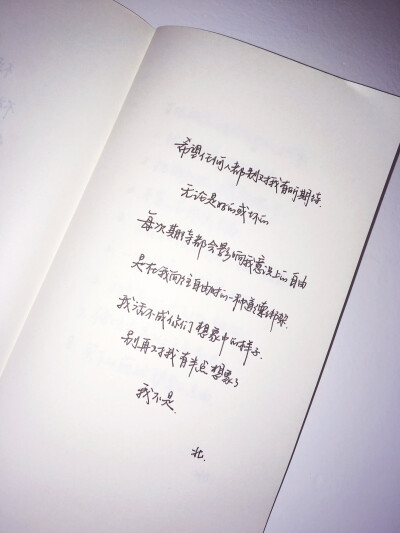 希望任何人都别对我有所期待.
无论是好的或坏的
每次期待都会影响我意识上的自由
是在我向往自由时的一种道德绑架.
我活不成你们想象中的样子.
别再对我有半点想象了
我不是.